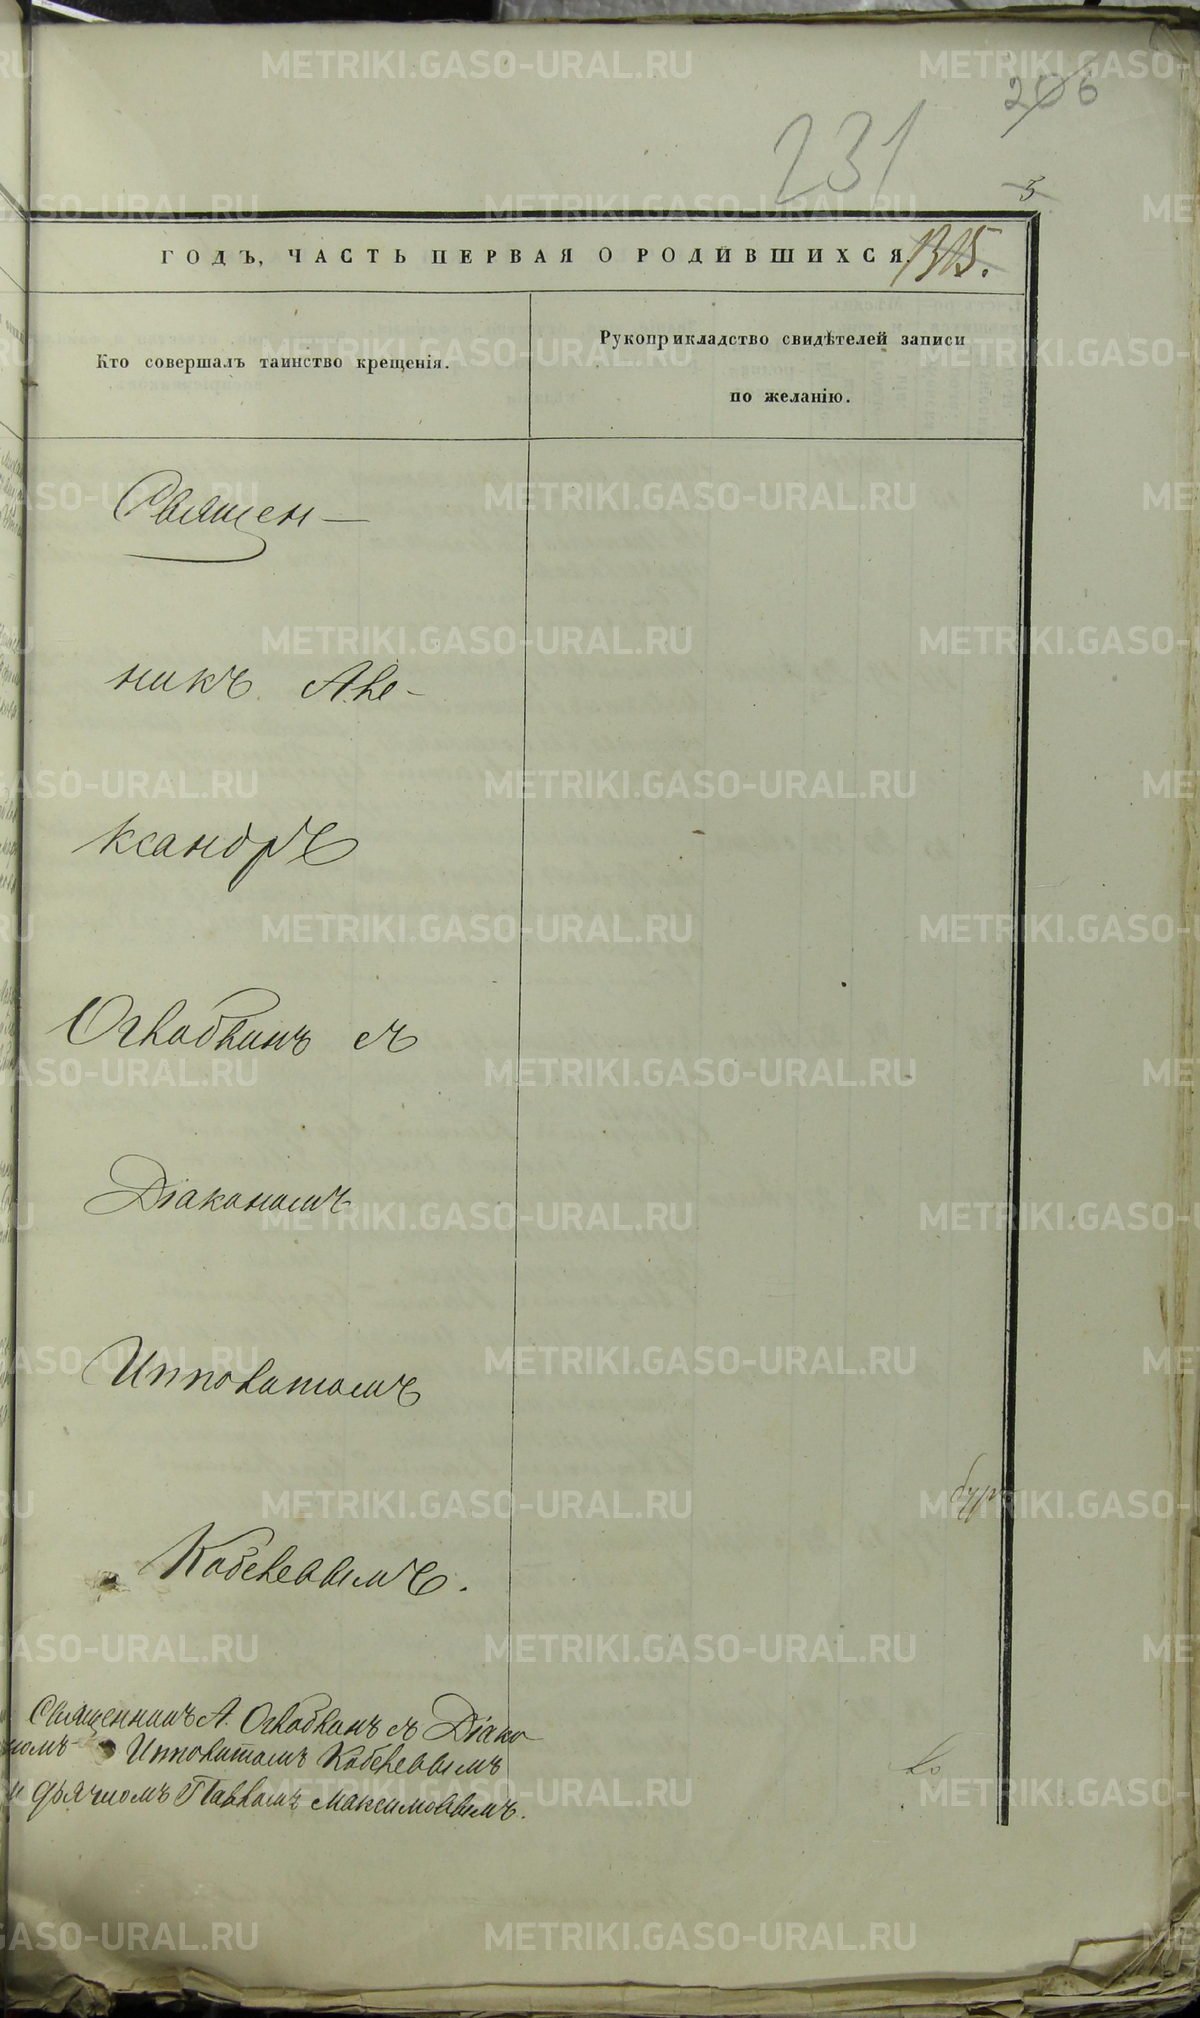 206
231
3
ГОДЪ, ЧАСТЬ ПЕРВАЯ О РОДИВШИХСЯ.
1305.
Кто совершалъ таинство крещенія.
Рукоприкладство свидѣтелей записи
по желанію.
Священ—
никъ Але-
ксандръ
Оглоблинъ съ
Діакономъ
Ипполитомъ
Кобелевымъ.
Священникъ А. Оглоблинъ съ Діако
номъ Ипполитомъ Кобелевымъ
и дьячкомъ Павломъ Максимовымъ.
METRIKI.GASO-URAL.RU